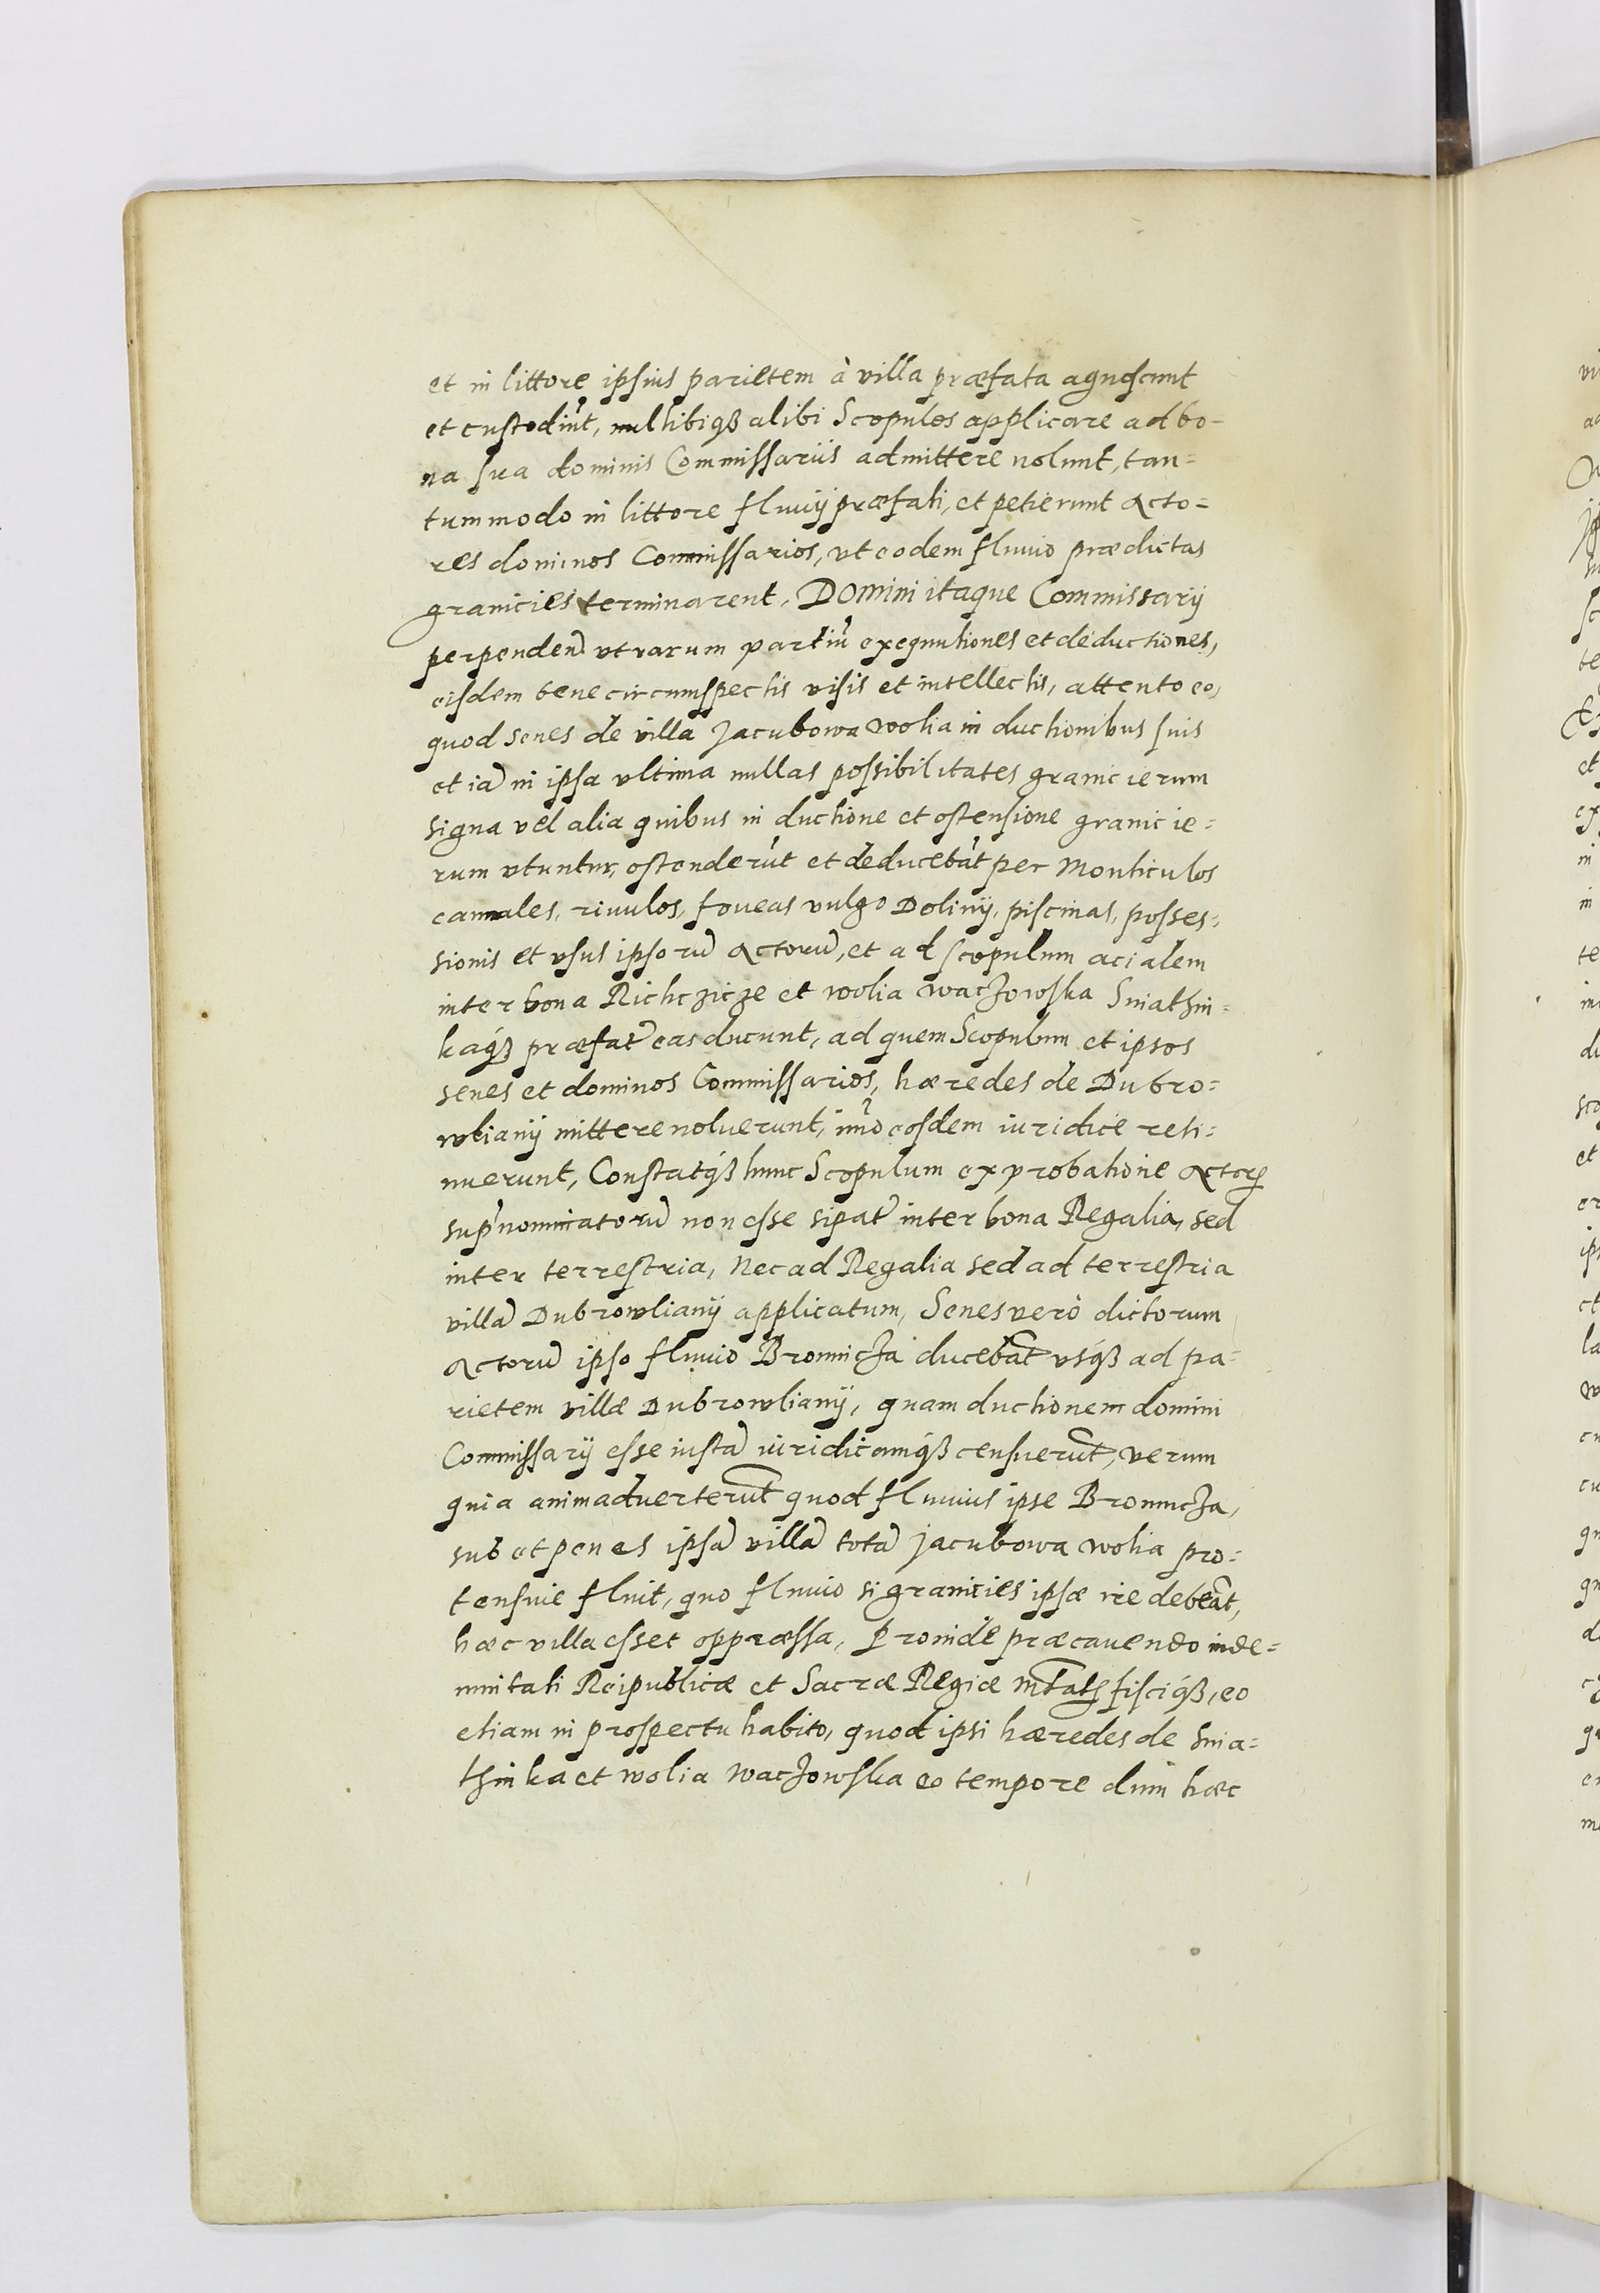 et in littore ipsius parietem à villa præfata agnoscunt
et custodiũt, nullibiqȝ alibi Scopulos applicare ad bo-
na sua dominis Commissariis admittere nolunt, tan=
tummodo in littore fluuij præfati, et petierunt Acto=
res dominos Commissarios, vt eodem fluuio prædictas
granicies terminarent, Domini itaque Commissarij
perpenden̄ vtrarum partiũ exequutiones et deductiones,
eisdem bene circumspectis visis et intellectis, attento eo,
quod senes de villa Jacubowa wolia in ductionibus suis
et iā in ipsa vltima nullas possibilitates granicierum
signa vel alia quibus in ductione et ostensione granicie=
rum vtuntur, ostenderũt et deducebāt per Monticulos
cannales, riuulos, foueas vulgo Dolinij, piscinas, posses=
sionis et vsus ipsorū Actorū, et ad scopulum acialem
inter bona Richczicze et wolia waczowska Sniathin=
káqȝ præfat̄ eas ducunt, ad quem Scopulum et ipsos
senes et dominos Commissarios, hæredes de Dubro=
wlianij mittere noluerunt, im̃o eosdem iuridice reti=
nuerunt, Constatqȝ hunc Scopulum ex probatione Actorꝝ
sup̄nominatorū non esse sipat̄ inter bona Regalia, sed
inter terrestria, Nec ad Regalia sed ad terrestria
villā Dubrowlianij applicatum, Senes verò dictorum
Actorū ipso fluuio Bronnicza ducebāt vsqȝ ad pa=
rietem villæ Dubrowlianij, quam ductionem domini
Commissarij esse iustā iuridicamqȝ censuerūt, verum
quia animaduerterūt quod fluuius ipse Bronnicza,
sub et penes ipsā villā totā Jacubowa wolia pro=
tensuie fluit, quo fluuio si granicies ipsæ rie debeāt,
hæc villa esset oppræssa, Proinde præcauendo inde=
mnitati Reipublicæ et Sacræ Regiæ mt̄atꝭ fisciqȝ, eo
etiam in prospectu habito, quod ipsi hæredes de Snia=
thinka et wolia waczowska eo tempore dum hæc